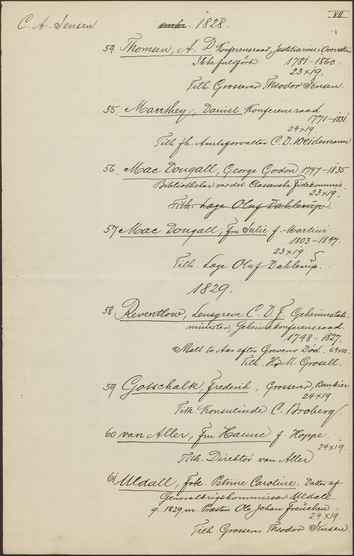 VII
C. A. Jensen
1828.
54 Thomsen, A. D. Konferensraad, Justitiarius i Overretten
Ikke fuldført 1781-1860.
23×19.
Tilh. Grosserer Theodor Jensen.
55 Manthey, Daniel Konferensraad
1771-1831
24×19
Tilh. fh. Amtsforvalter C. D. Weidemann
56 Mac Dougall, George Godon 1797-1835
Bibliothekar ved det Classenske Fideikommis.
23×19.
Tilh. Læge Oluf Dahlerup
57 Mac Dougall, Fru Julie f. Martini
1803-1847.
23×19
Tilh. Læge Oluf Dahlerup.
1829.
58 Reventlow, Lensgreve C. D. F. Geheimestats-
minister, Geheimekonferensraad.
1748-1827.
Malt to Aar efter Grevens Død.
Tilh. Grosell.
59 Gosschalk Frederik, Grosserer, Bankier
24×19
Tilh. Konsulinde C. Broberg
60 van Aller, Fru Hanne f. Hoppe.
24×19.
Tilh. Direktør van Aller
61 Uldall, Frk Petrine Caroline. Datter af
Generalkrigskommissær Uldall
g. 1829 m. Pastor Ole Johan
24×19.
Tilh. Grosserer Theodor Jensen